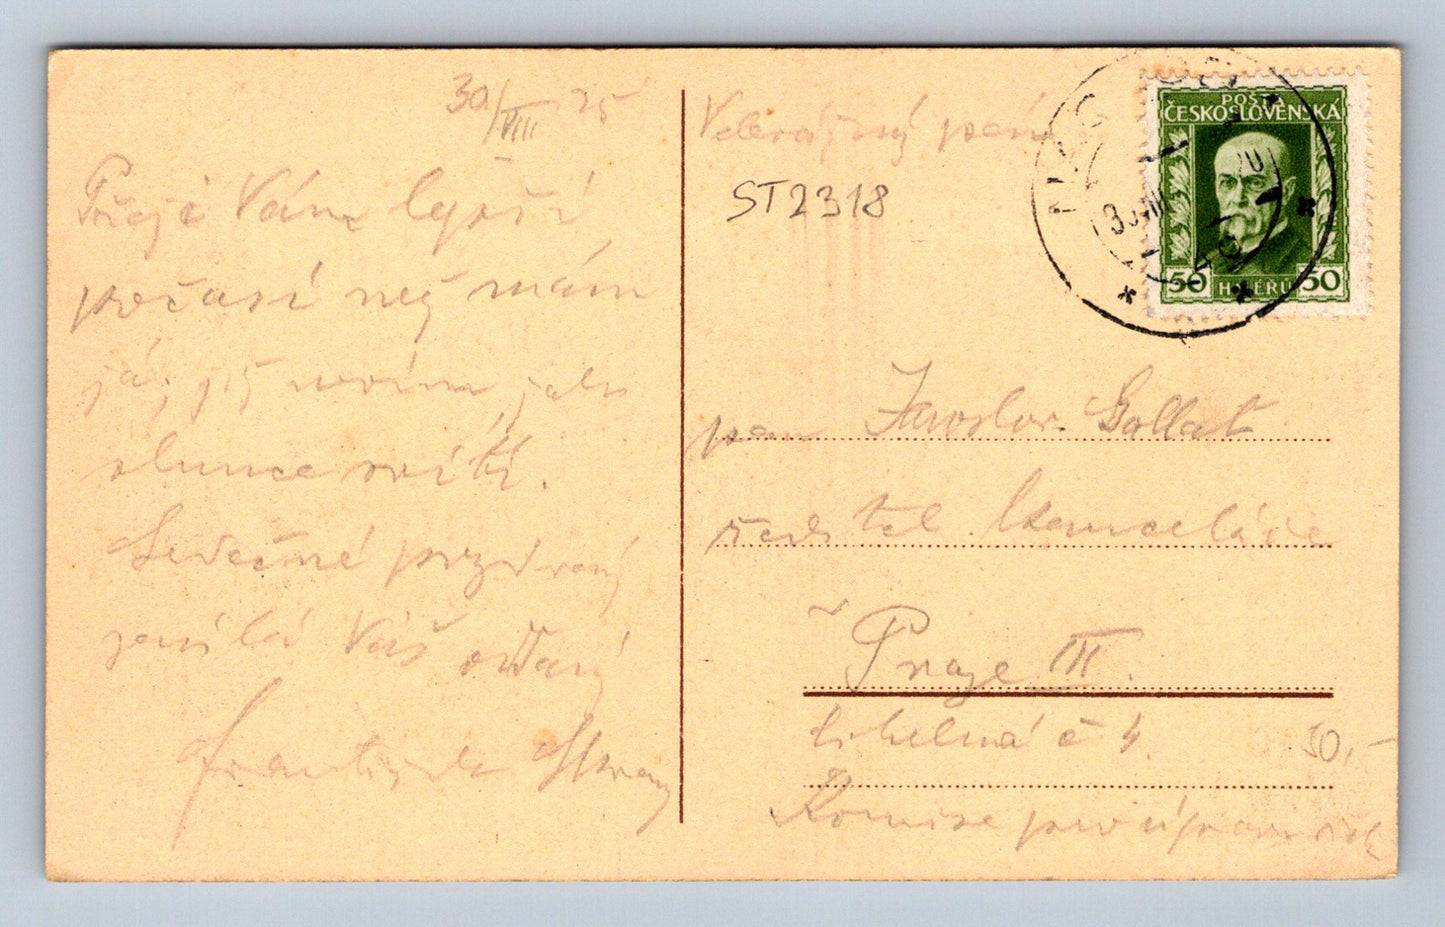 30/VIII 25
Přeji Vám lepší
počasí než mám
já, již nevím jak
slunce svítí.
Srdečné pozdravy
zasílá Váš oddaný
František
Velevážený pan
ST2318
POŠTA
ČESKOSLOVENSKÁ
50 HALÉŘŮ 50
pan Jaroslav Gollat
ředitel kanceláře
Praze III.
Cihelná č 4.
50,-
Komise pro úpravu